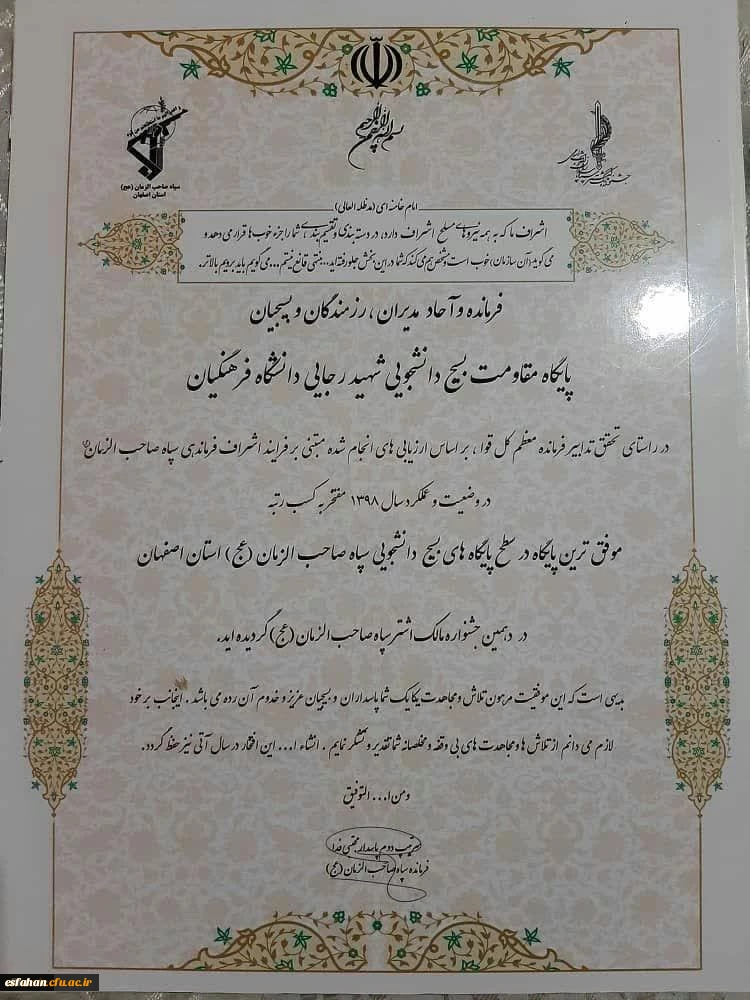 بسم الله الرحمن الرحیم
سپاه صاحب الزمان (عج)
استان اصفهان
امام خامنه ای (مدظله العالی)
اشراف ما که به همه نیروهای مسلح اشراف دارد، در دسته بندی و تقسیم بندی، شما را جزء خوب‌ها قرار می دهد و
می گوید (آن سازمان) خوب است و شخص هم می کند که شما در این بخش جلو رفته اید... منتهی قانع نیستم... می گویم باید برویم بالاتر.
فرمانده و آحاد مدیران ، رزمندگان و بسیجیان
پایگاه مقاومت بسیج دانشجویی شهید رجایی دانشگاه فرهنگیان
در راستای تحقق تدابیر فرمانده معظم کل قوا ، بر اساس ارزیابی های انجام شده مبتنی بر فرایند اشراف فرماندهی سپاه صاحب الزمان
در وضعیت و عملکرد سال ۱۳۹۸ مفتخر به کسب رتبه
موفق ترین پایگاه در سطح پایگاه های بسیج دانشجویی سپاه صاحب الزمان (عج) استان اصفهان
در دهمین جشنواره مالک اشتر سپاه صاحب الزمان (عج) گردیده اید.
بدیهی است که این موفقیت مرهون تلاش و مجاهدت یکایک شما پاسداران و بسیجیان عزیز و خدوم آن رده می باشد . اینجانب بر خود
لازم می دانم از تلاش ها و مجاهدت های بی وقفه و مخلصانه شما تقدیر و تشکر نمایم . انشاء ا... این افتخار در سال آتی نیز حفظ گردد.
ومن ا... التوفیق
سرتیپ دوم پاسدار مجتبی فدا
فرمانده سپاه صاحب الزمان (عج)
esfahan.cfu.ac.ir